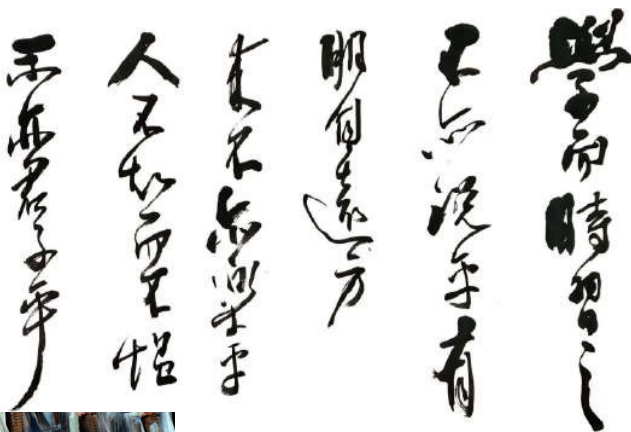 學而時習之
不亦說乎有
朋自遠方
來不亦樂乎
人不知而不慍
不亦君子乎